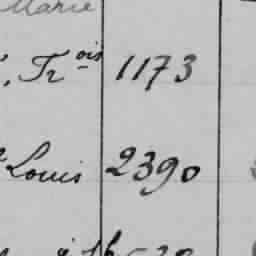 Marie
, Frois 1173
Louis 2390